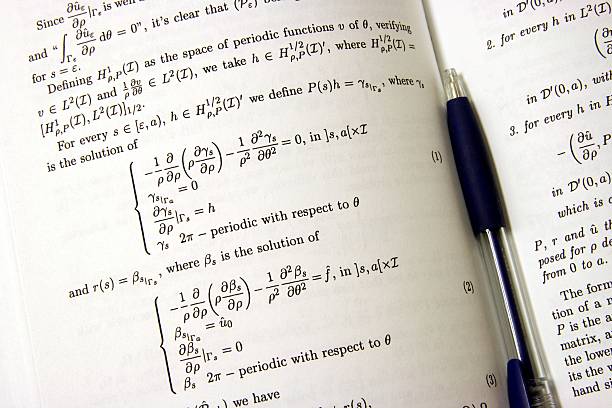 Since ∂û_ε/∂ρ|_Γε is well
and “∫_Γε ∂û_ε/∂ρ dθ = 0”, it's clear that (P_ε)
for s = ε.
Defining H¹_ρ,P(I) as the space of periodic functions v of θ, verifying
v ∈ L²(I) and 1/ρ ∂v/∂θ ∈ L²(I), we take h ∈ H^1/2_ρ,P(I)', where H^1/2_ρ,P(I) =
[H¹_ρ,P(I), L²(I)]_1/2.
For every s ∈ [ε, a), h ∈ H^1/2_ρ,P(I)' we define P(s)h = γ_s|Γs, where γ_s
is the solution of
−1/ρ ∂/∂ρ(ρ ∂γ_s/∂ρ) − 1/ρ² ∂²γ_s/∂θ² = 0, in ]s, a[×I
γ_s|Γa = 0
∂γ_s/∂ρ|_Γs = h
γ_s 2π − periodic with respect to θ
(1)
and r(s) = β_s|Γs, where β_s is the solution of
−1/ρ ∂/∂ρ(ρ ∂β_s/∂ρ) − 1/ρ² ∂²β_s/∂θ² = f̂, in ]s, a[×I
β_s|Γa = û₀
∂β_s/∂ρ|_Γs = 0
β_s 2π − periodic with respect to θ
(2)
we have
(3)
in D'(0, a),
2. for every h in L²(I)
in D'(0, a), with
3. for every h in H
−(∂û/∂ρ, P
in D'(0, a)
which is a
P, r and û th
posed for ρ de
from 0 to a.
The form
tion of a
P is the a
matrix, a
the lower
its the
hand si